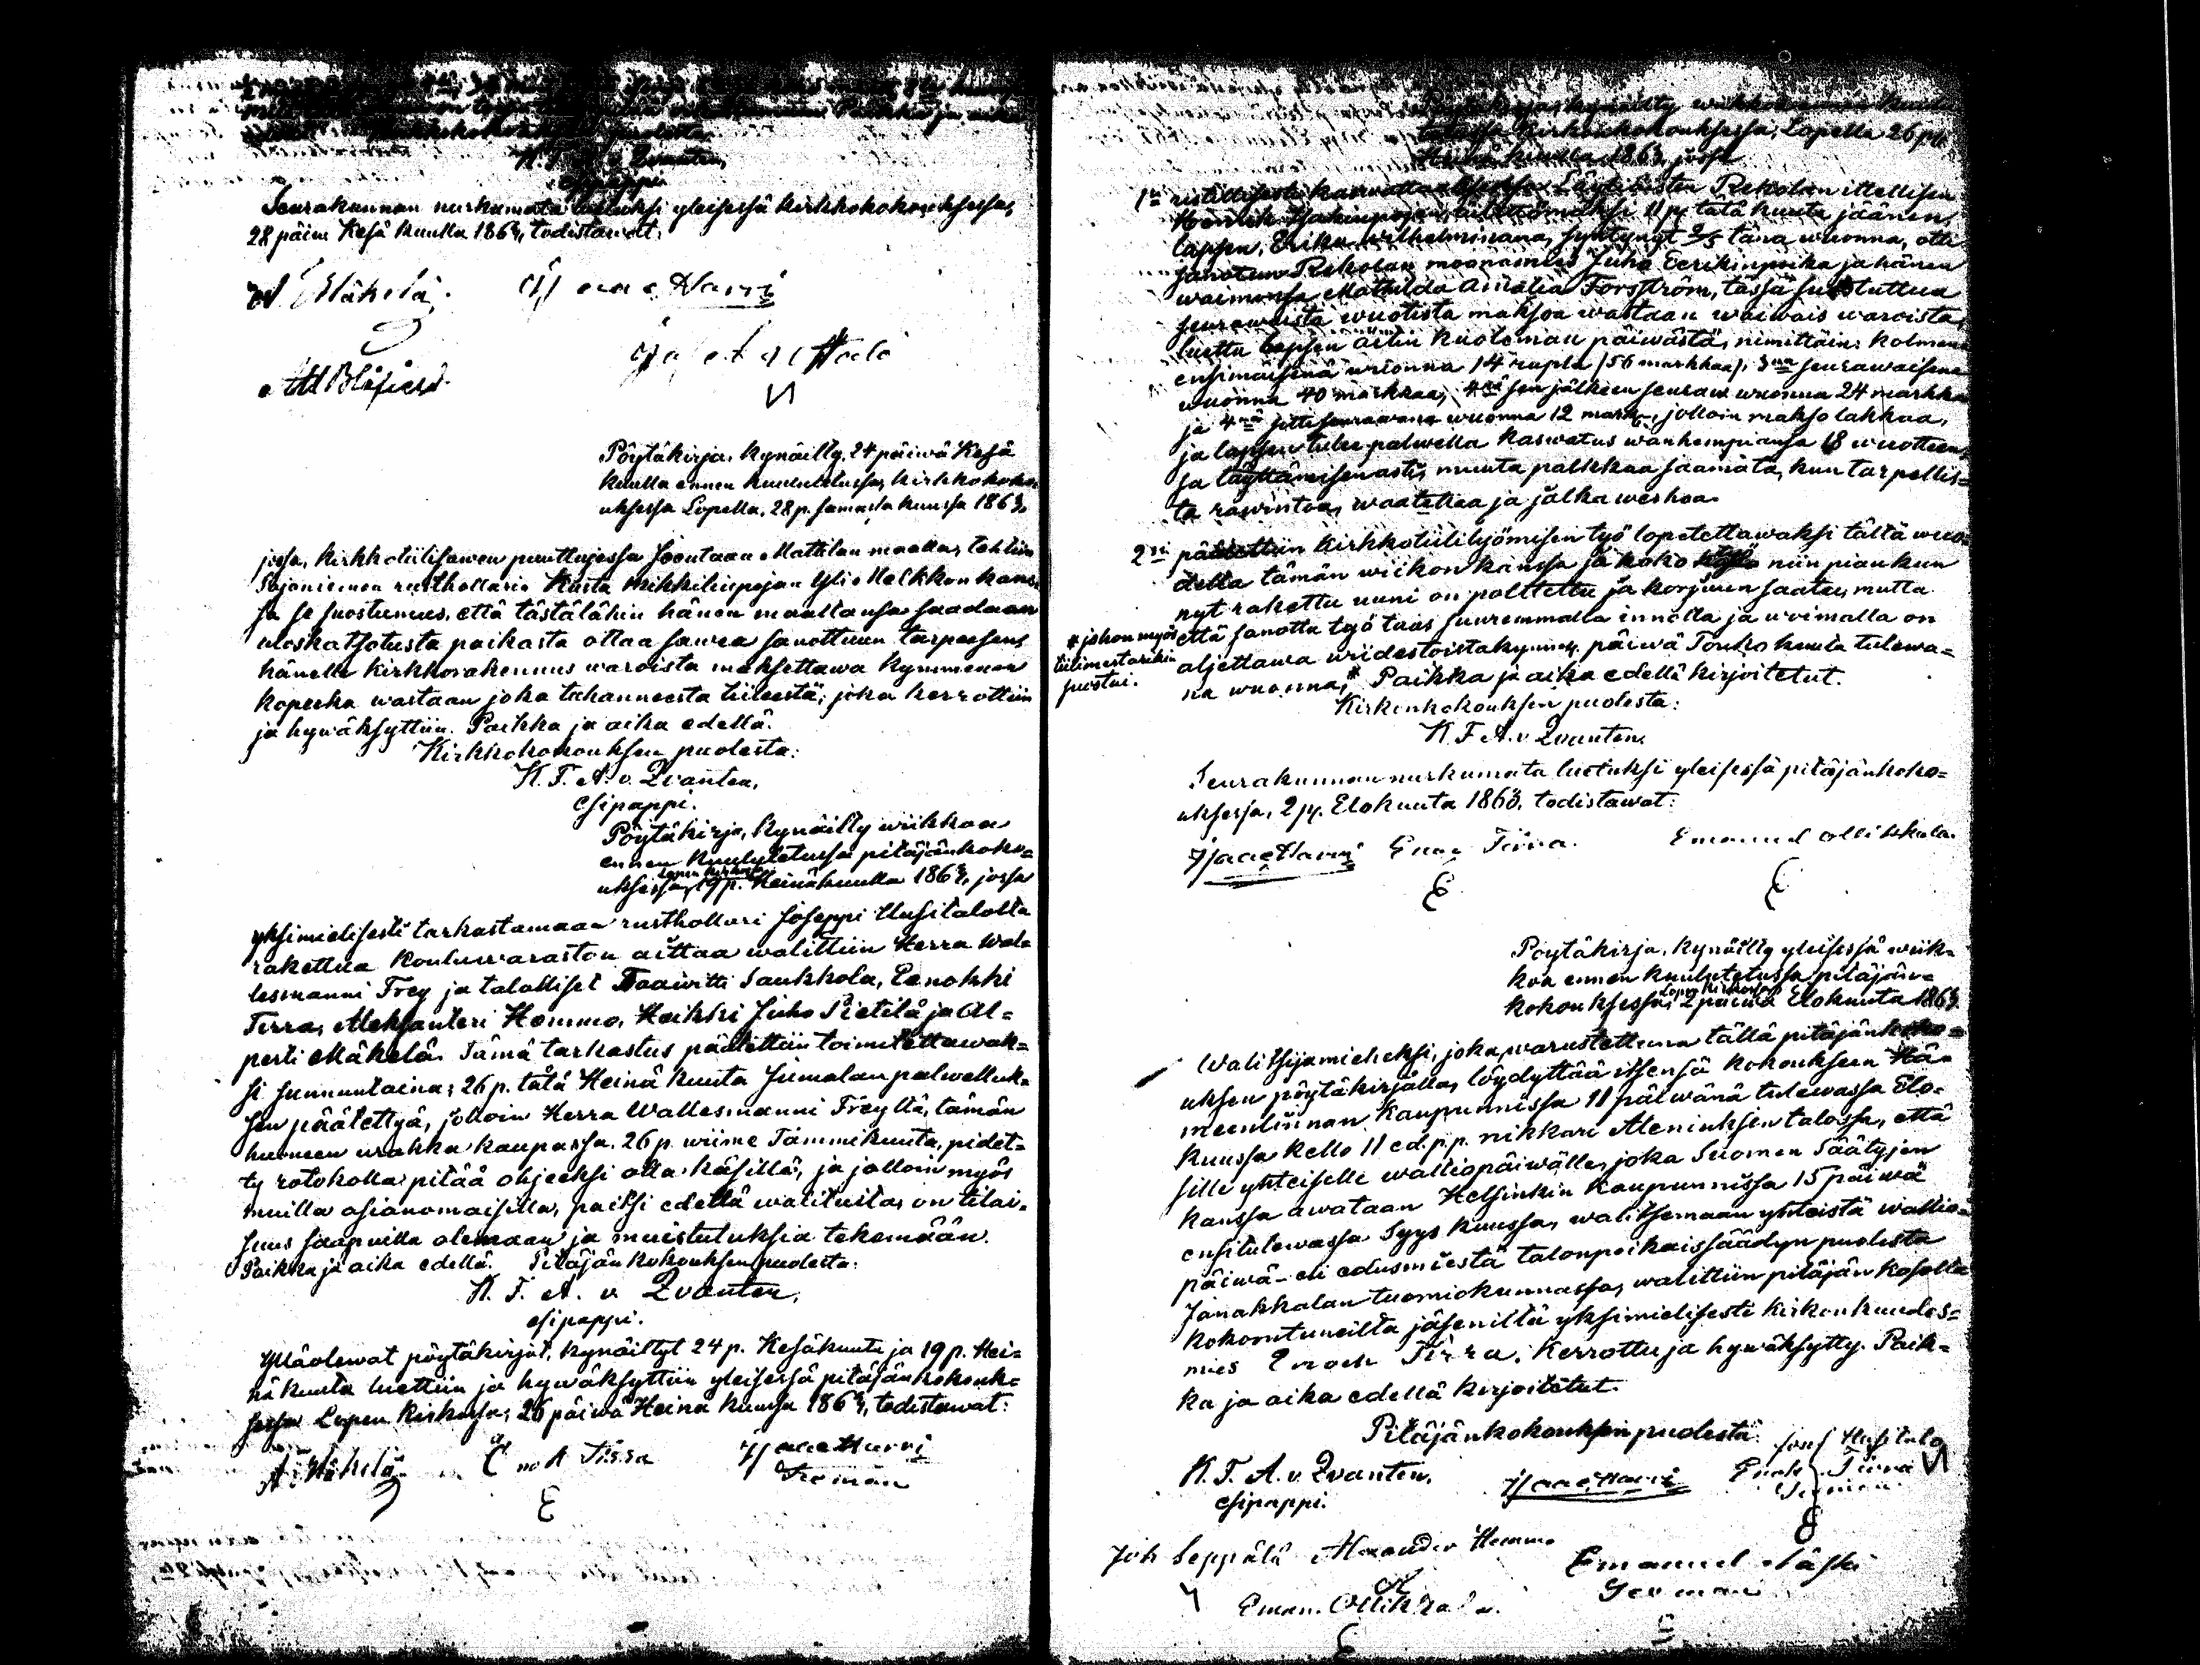 K. F. A. v. Qvanten,
Esipappi.
Seurakunnan nurkumata luetuksi yleisessä kirkkokokouksessa,
28 päiw. Kesä kuulla 1863, todistawat:
A. Mäkelä. Isaac Harri
Pöytäkirja, kynäilty, 24 päiwä Kesä
kuulla ennen kuulutetussa, kirkkokoko-
uksessa Lopella, 28 p. samasta kuussa 1863,
jossa, kirkkotiilisawen puuttuessa Joentaan Mattilan maalla, tehtiin
Sajaniemen rusthollarin Kusta Mikkelinpojan Yli Nelkkon kans-
sa se suostumus, että tästälähin hänen maaltansa saadaan
uloskatsotusta paikasta ottaa sawea sanottuun tarpeesen,
hänelle kirkkorakennus waroista maksettawa kymmenen
kopeekka wastaan joka tuhannesta tiilestä; joka kerrottiin
ja hywäksyttiin. Paikka ja aika edellä.
Kirkkokokouksen puolesta:
K. F. A. v. Qvanten,
Esipappi.
Pöytäkirja, kynäilty wiikkoa
ennen kuulutetussa pitäjänkoko-
uksessa, Lopen kirkossa 19 p. Heinäkuulla 1863, jossa
yksimielisesti tarkastamaan rusthollari Joseppi Uusitalolta
rakettua koulu waraston aittaa walittiin Herra Wal-
lesmanni Frey ja talolliset Taawitti Saukkola, Eenokki
Tirra, Aleksanteri Hemmo, Heikki Juho Pietilä ja Al-
perti Mäkelä. Tämä tarkastus päätettiin toimitettawak-
si sunnuntaina, 26 p. tätä Heinä kuuta Jumalan palwelluk-
sen päätettyä, jolloin Herra Wallesmanni Freyltä, tämän
huoneen urakka kaupassa, 26 p. wiime Tammikuuta, pidet-
ty rotokolla pitää ohjeeksi olla käsillä, ja jolloin myös
muilla asianomaisilla, paitsi edellä walituilla, on tilai-
suus saapuilla olemaan ja muistutuksia tekemään.
Paikka ja aika edellä. Pitäjänkokouksen puolesta:
K. F. A. v. Qvanten,
Esipappi.
Ylläolewat pöytäkirjat, kynäiltyt 24 p. Kesäkuuta ja 19 p. Hei-
näkuuta luettiin ja hywäksyttiin yleisessä pitäjänkokouk-
sessa Lopen kirkossa, 26 päiwä Heinä kuussa 1863, todistawat:
A. Mäkelä Enok Tirra Isaac Harri
kynäilty wiikkoa ennen kuulu-
tetussa kirkonkokouksessa, Lopella 26 p.
Heinä kuulla 1863, jossa
1si Läyliäisten Rekolan itellisen
11 p. tätä kuuta jäänen
lapsen, Erika Wilhelmiinana, syntynyt 2/5 tänä wuonna, otti
sanotun Rekolan moonamies Juho Eerikinpoika ja hänen
waimonsa Mathilda Amalia Forsström, tässä suostuttua
seurawaista wuotista maksoa wastaan waiwais waroista,
luettu lapsen äitin kuoleman päiwästä, nimittäin: kolmena
ensimäisenä wuonna 14 rupla (56 markkaa), 3na seurawaisena
wuonna 40 markkaa, 4nä sen jälkeen seuraw. wuonna 24 markka
ja 4nä sitte seurawana wuonna 12 mark., jolloin makso lakkaa,
ja lapsen tulee palwella kaswatus wanhempiansa 18 wuotteen,
sa täyttämiseen asti, muuta palkkaa saamata, kun tarpellis-
ta rawintoa, waatetta ja jalka weskoa.
2si päätettiin kirkkotiililyömisen työ lopetettawaksi tältä wuo-
delta tämän wiikon kanssa ja koko niin pian kun
nyt rakettu uuni on polttettu ja korjuun saatu, mutta
että sanottu työ taas suuremmalla innolla ja woimalla on
aljettawa wiidestoistakymm. päiwä Touko kuuta tulewa-
na wuonna,* Paikka ja aika edellä kirjoitetut.
* johon myös
tiilimestarikin
suostui.
Kirkonkokouksen puolesta:
K. F. A. v. Qvanten.
Seurakunnan nurkumata luetuksi yleisessä pitäjänkoko-
uksessa, 2 p. Elokuuta 1863, todistawat:
Isaac Harri Enoc Tirra. Emanuel Ollikkala.
Pöytäkirja, kynäilty yleisessä wiik-
koa ennen kuulutetussa pitäjän-
kokouksessa, Lopen kirkossa 2 päiwä Elokuuta 1863
Walitsijamieheksi, joka, warustettuna tällä pitäjänkoko-
uksen pöytäkirjalla, löydyttää itsensä kokoukseen Hä-
meenlinnan kaupunnissa 11 päiwänä tulewassa Elo-
kuussa kello 11 ed. p.p. nikkari Aleniuksen talossa, että
sille yhteiselle waltiopäiwälle, joka Suomen Säätyjen
kanssa awataan Helsinkin kaupunnissa 15 päiwä
ensitulewassa Syys kuussa, walitsemaan yhteistä waltio-
päiwä- eli edusmiestä talonpoikaissäädyn puolesta
Janakkalan tuomiokunnassa, walittiin pitäjän koolla
kokoontuneilta jäseniltä yksimielisesti kirkon kuudes-
mies Enoch Tirra. Kerrottu ja hywäksytty. Paik-
ka ja aika edellä kirjoitetut.
Pitäjänkokouksen puolesta:
K. F. A. v. Qvanten, Isaac Harri Josef Uusitalo
Esipappi. Enok Tirra
Joh Seppälä Alexander Hemmo Emanuel
Eman. Ollikkala.